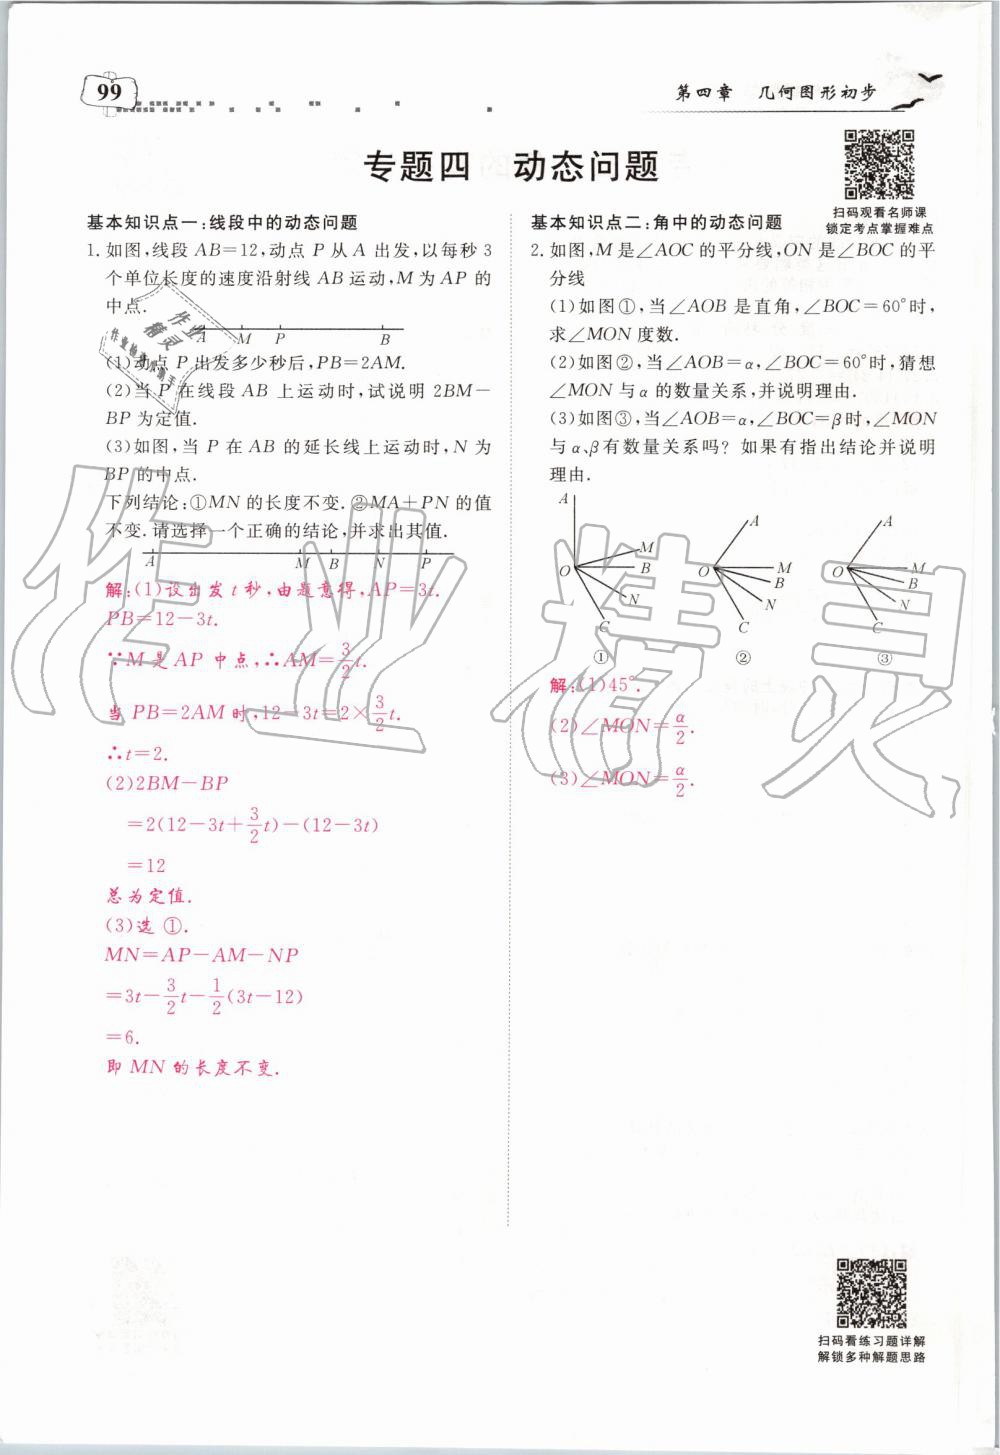 99
第四章 几何图形初步
专题四 动态问题
扫码观看名师课
锁定考点掌握难点
基本知识点一:线段中的动态问题
1. 如图,线段 AB=12,动点 P 从 A 出发,以每秒 3
个单位长度的速度沿射线 AB 运动,M 为 AP 的
中点.
A M P B
(1)动点 P 出发多少秒后,PB=2AM.
(2)当 P 在线段 AB 上运动时,试说明 2BM-
BP 为定值.
(3)如图,当 P 在 AB 的延长线上运动时,N 为
BP 的中点.
下列结论:①MN 的长度不变.②MA+PN 的值
不变.请选择一个正确的结论,并求出其值.
A M B N P
解:(1)设出发 t 秒,由题意得,AP=3t.
PB=12-3t.
∵M 是 AP 中点,∴AM=3/2 t.
当 PB=2AM 时,12-3t=2×3/2 t.
∴t=2.
(2)2BM-BP
=2(12-3t+3/2 t)-(12-3t)
=12
总为定值.
(3)选 ①.
MN=AP-AM-NP
=3t-3/2 t-1/2(3t-12)
=6.
即 MN 的长度不变.
基本知识点二:角中的动态问题
2. 如图,M 是∠AOC 的平分线,ON 是∠BOC 的平
分线
(1)如图①,当∠AOB 是直角,∠BOC=60°时,
求∠MON 度数.
(2)如图②,当∠AOB=α,∠BOC=60°时,猜想
∠MON 与 α 的数量关系,并说明理由.
(3)如图③,当∠AOB=α,∠BOC=β时,∠MON
与 α、β 有数量关系吗? 如果有指出结论并说明
理由.
A
M
O B
N
C
①
A
O M
B
N
C
②
A
O M
B
N
C
③
解:(1)45°.
(2)∠MON=α/2.
(3)∠MON=α/2.
扫码看练习题详解
解锁多种解题思路
作业精灵
作业
精灵